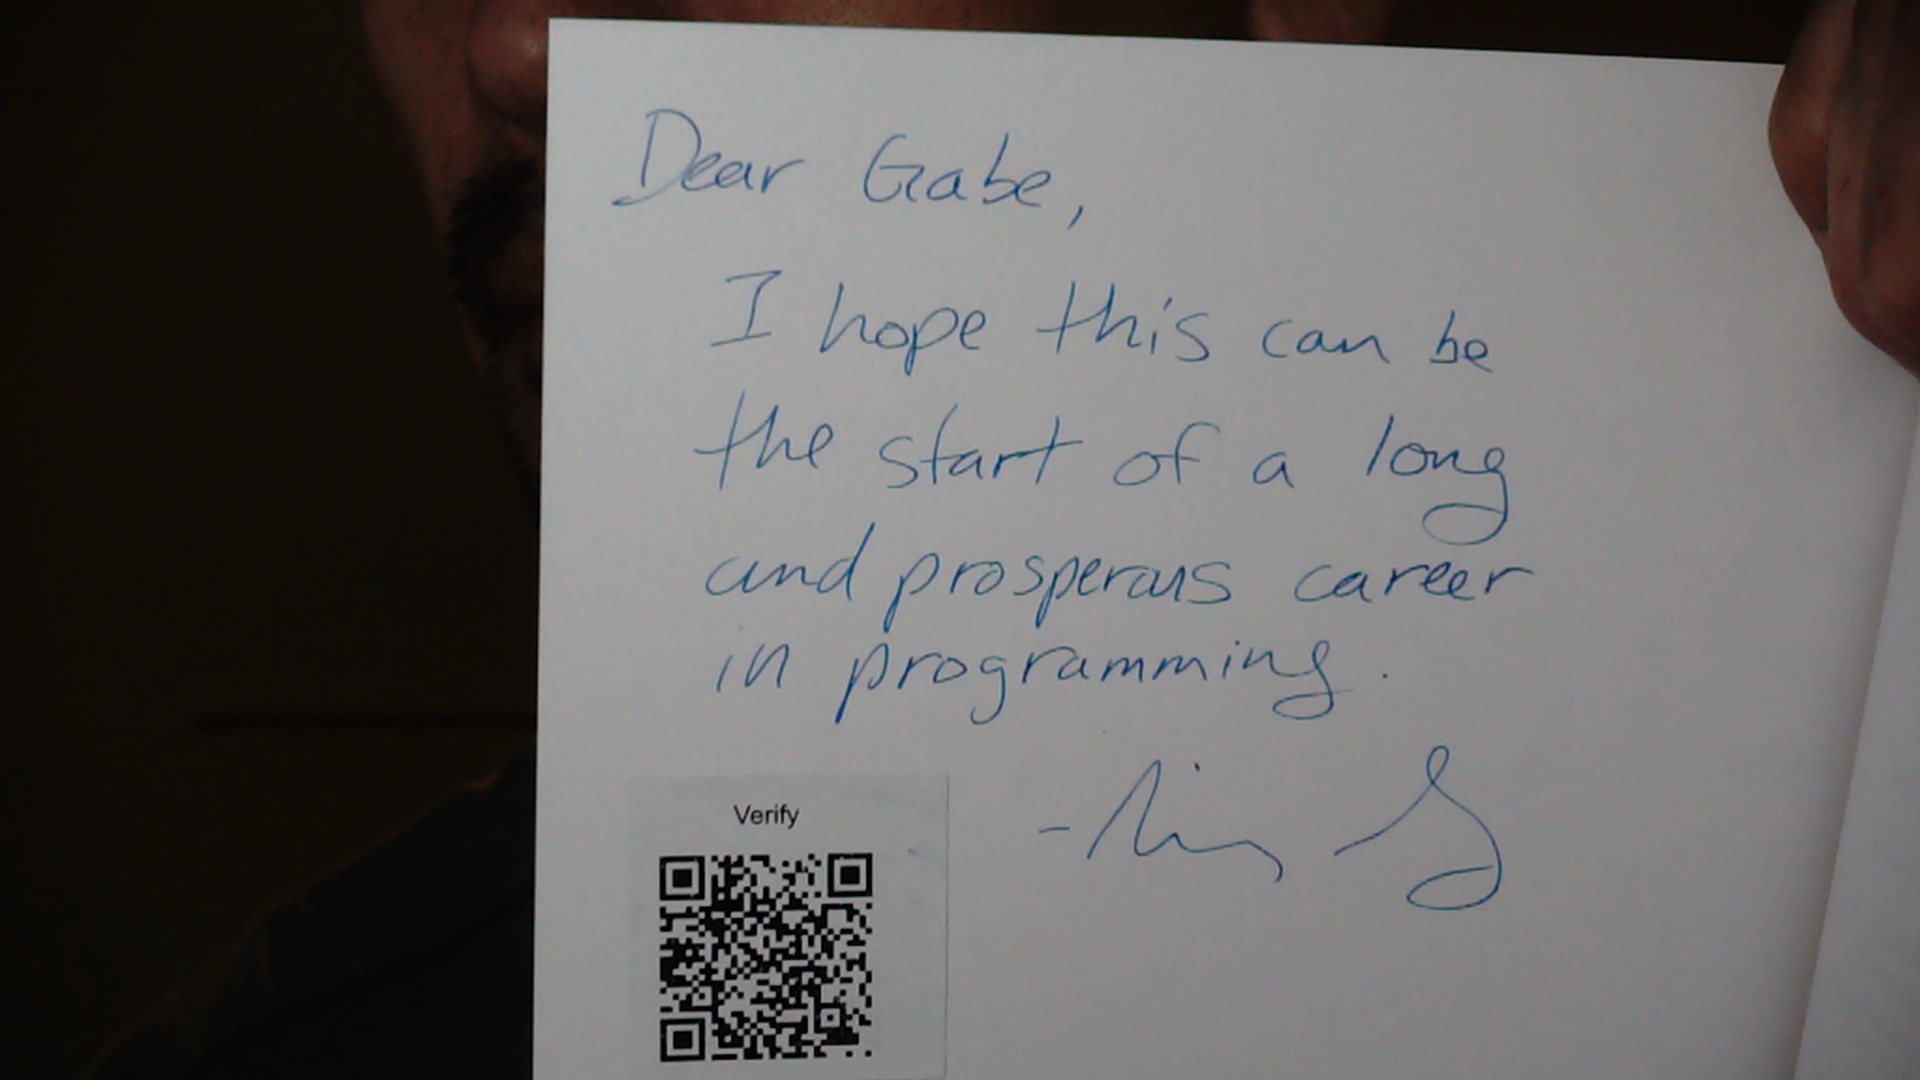 Dear Gabe,
I hope this can be
the start of a long
and prosperous career
in programming.
Verify